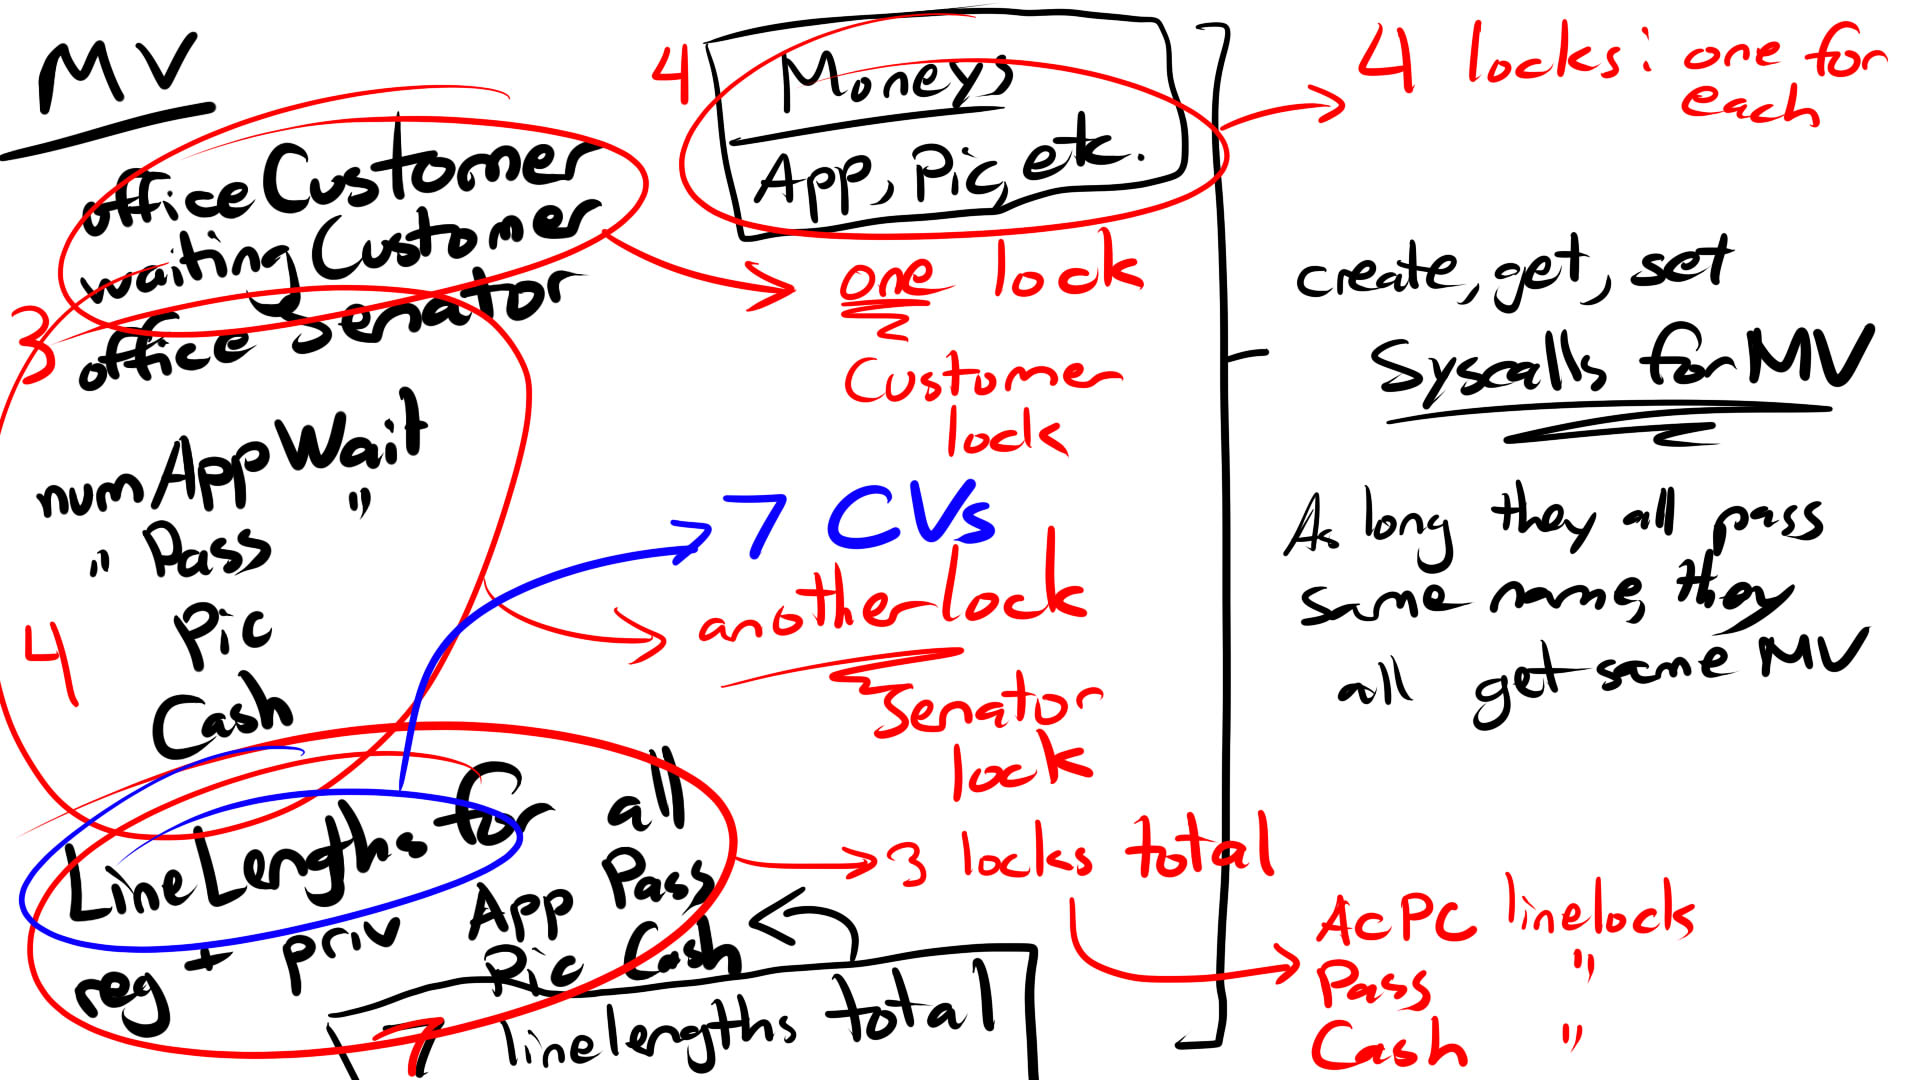 MV
officeCustomer
waiting Customer
3
office Senator
numAppWait
" Pass "
Pic
4
Cash
LineLengths for all
reg + priv App Pass
Pic Cash
7 linelengths total
4
Moneys
App, Pic, etc.
one lock
Customer
lock
7 CVs
another lock
Senator
lock
3 locks total
4 locks: one for
each
create, get, set
Syscalls for MV
As long they all pass
same name, they
all get same MV
AcPC linelock
Pass "
Cash "